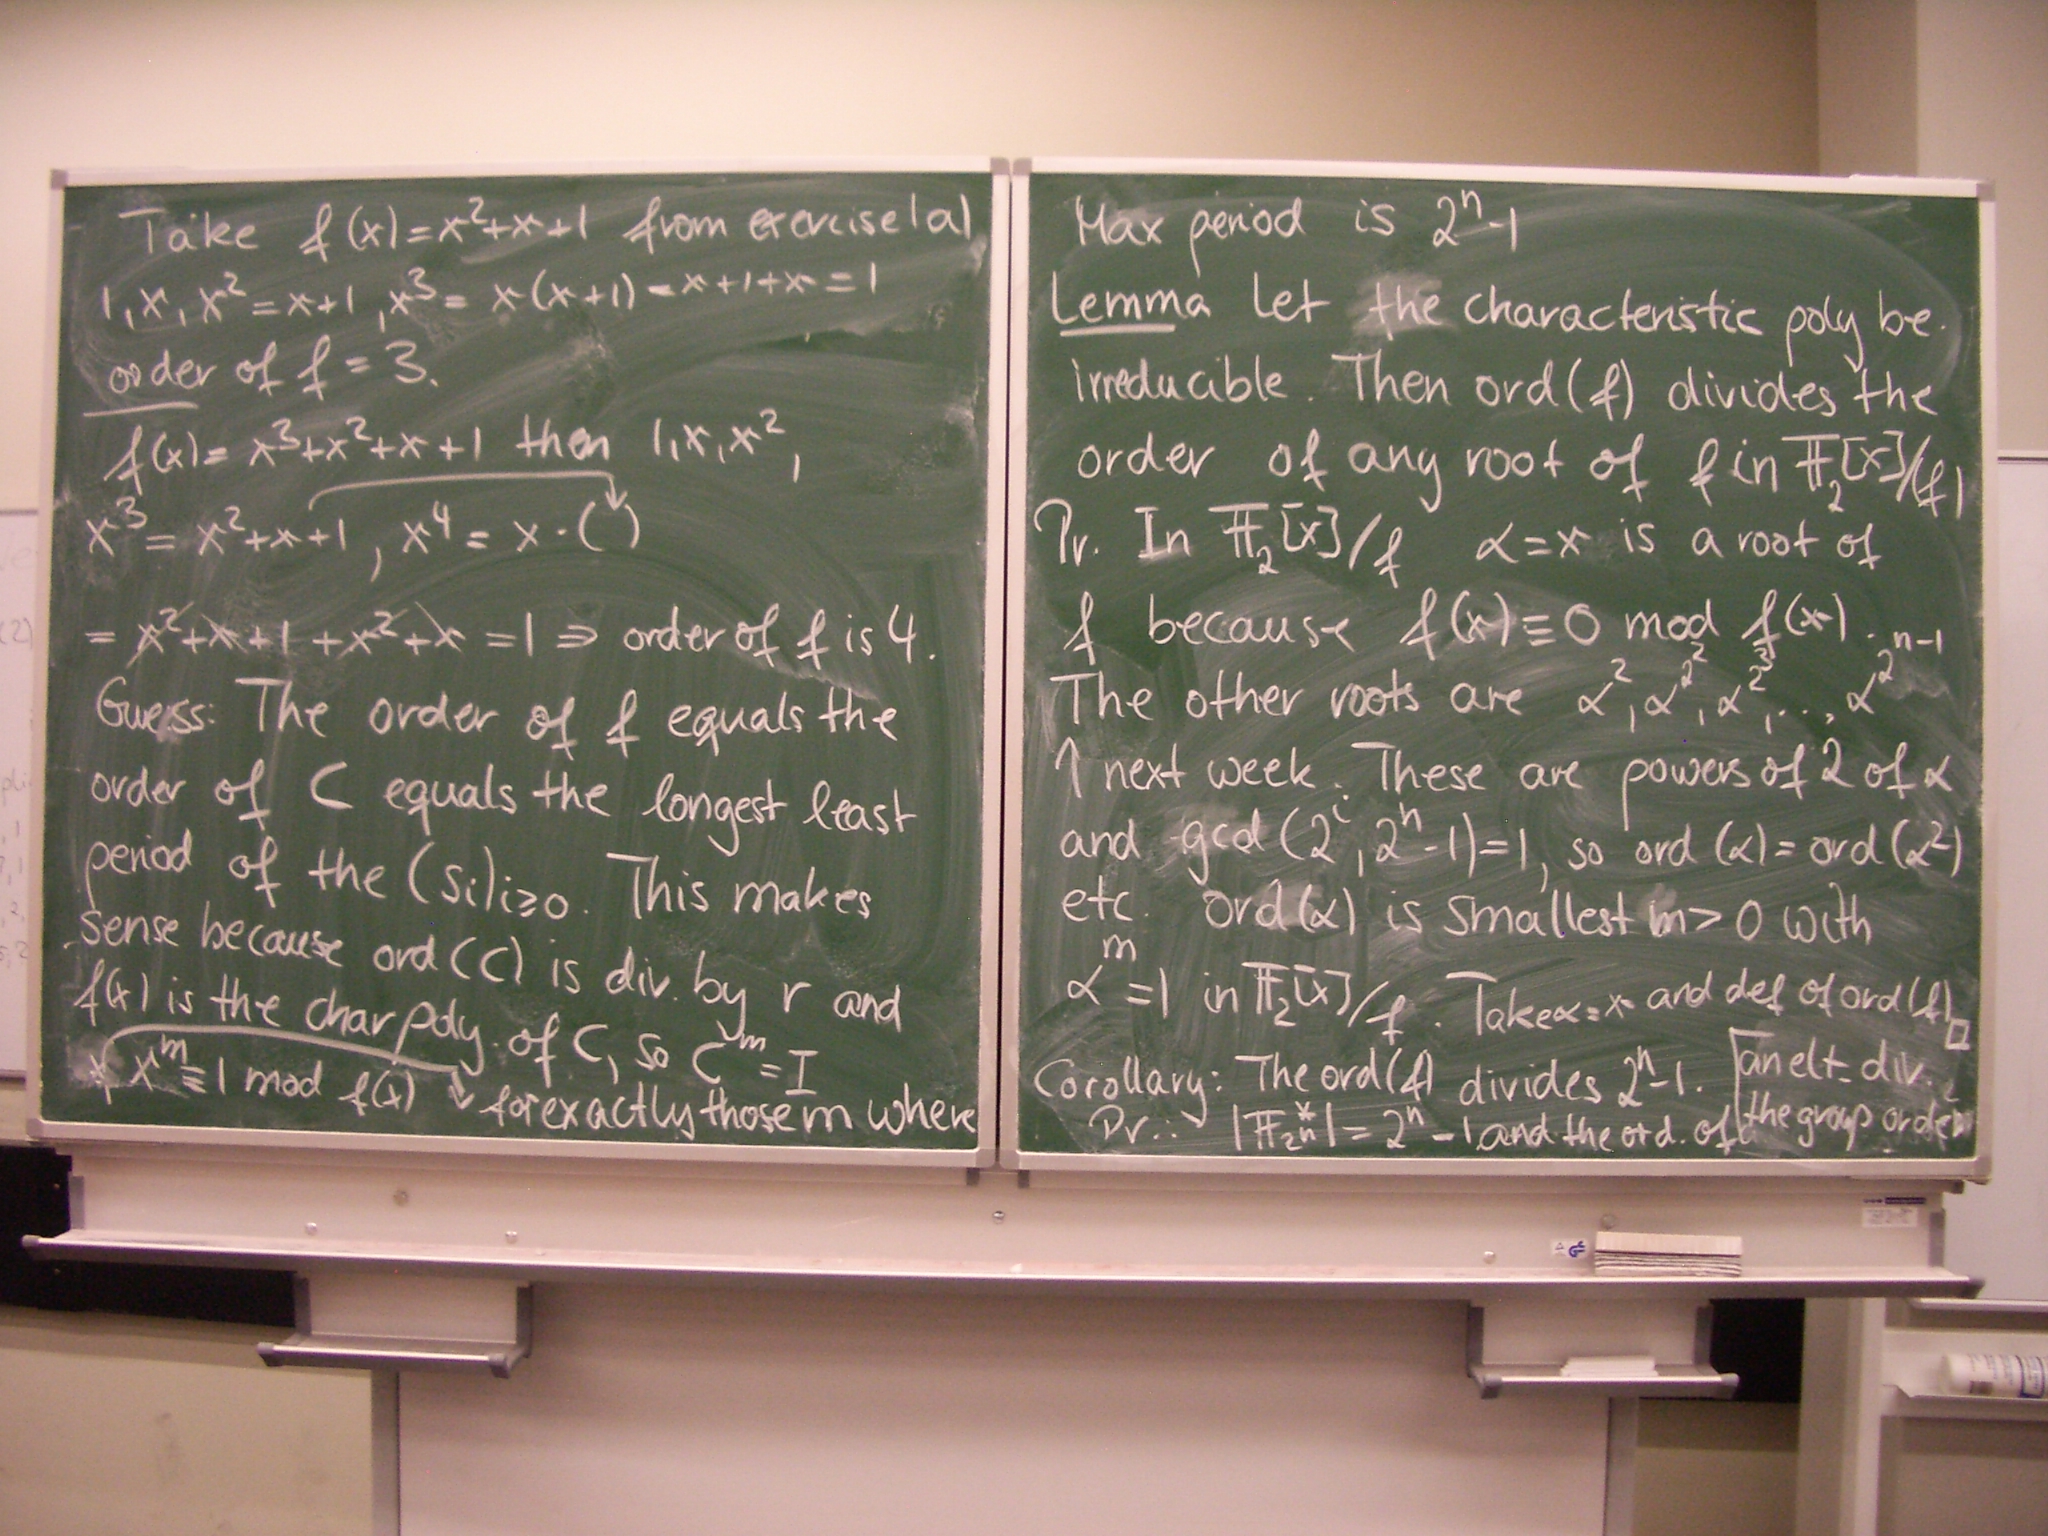 Take f(x)=x²+x+1 from exercise 1a)
1, x, x² = x+1, x³ = x(x+1) = x+1+x = 1
order of f = 3.
f(x) = x³+x²+x+1 then 1, x, x²,
x³ = x²+x+1, x⁴ = x·( )
= x²+x+1+x²+x = 1 ⇒ order of f is 4.
Guess: The order of f equals the
order of C equals the longest least
period of the (si)i≥0. This makes
sense because ord(C) is div. by r and
f(x) is the char poly. of C, so C^m = I
x^m ≡ 1 mod f(x) for exactly those m where
Max period is 2^n-1
Lemma Let the characteristic poly be
irreducible. Then ord(f) divides the
order of any root of f in 𝔽₂[x]/(f)
Pr. In 𝔽₂[x]/f α=x is a root of
f because f(x)≡0 mod f(x).
The other roots are α^2, α^2^2, α^2^3, ..., α^2^n-1
↑ next week. These are powers of 2 of α
and gcd(2^i, 2^n-1)=1, so ord(α)=ord(α²)
etc. ord(α) is smallest m>0 with
α^m=1 in 𝔽₂[x]/f. Take α=x and def of ord(f) □
Corollary: The ord(f) divides 2^n-1.
Pr.: |𝔽*_2^n| = 2^n-1 and the ord. of
an elt. div.
the group order